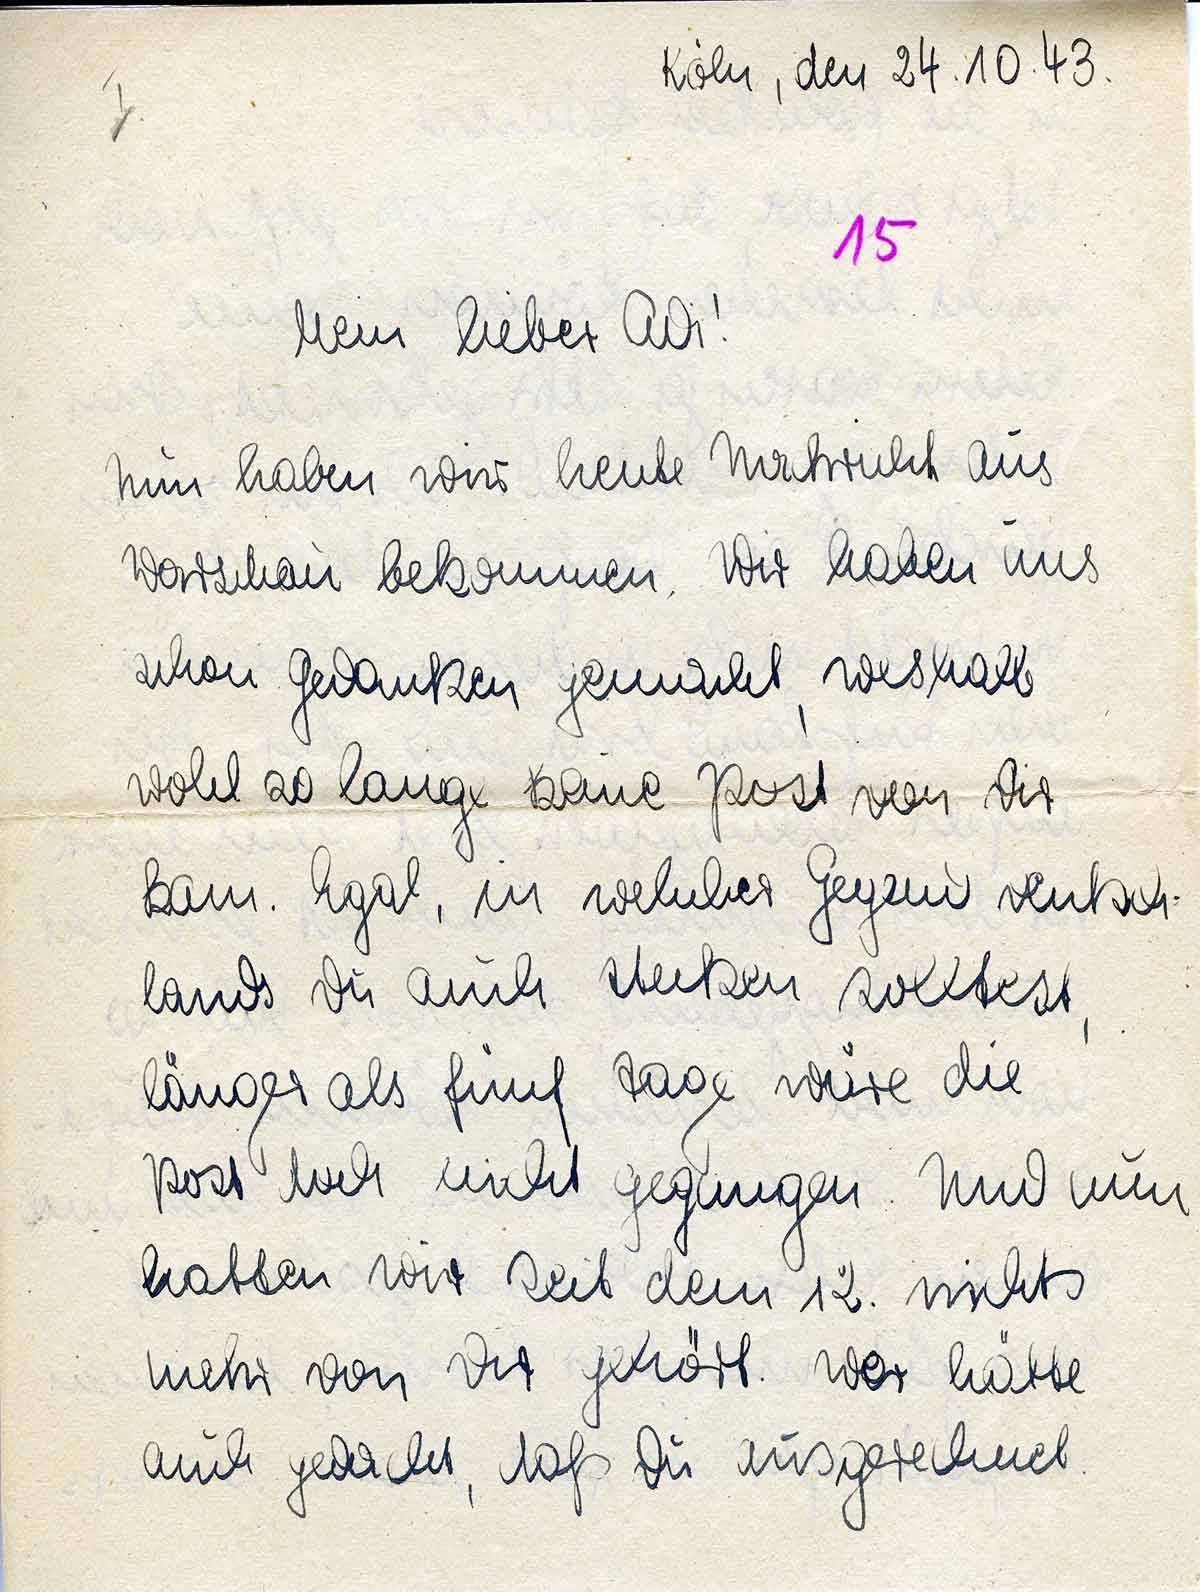 Köln, den 24.10.43.
I.
15
Mein lieber Adi!
Nun haben wir heute Nachricht aus
Warschau bekommen. Wir haben uns
schon Gedanken gemacht, weshalb
wohl so lange keine Post von Dir
kam. Egal, in welcher Gegend Deutsch-
lands Du auch stecken solltest,
länger als fünf Tage wäre die
Post doch nicht gegangen. Und nun
hatten wir seit dem 12. nichts
mehr von Dir gehört. Wer hätte
auch gedacht, daß Du ausgerechnet